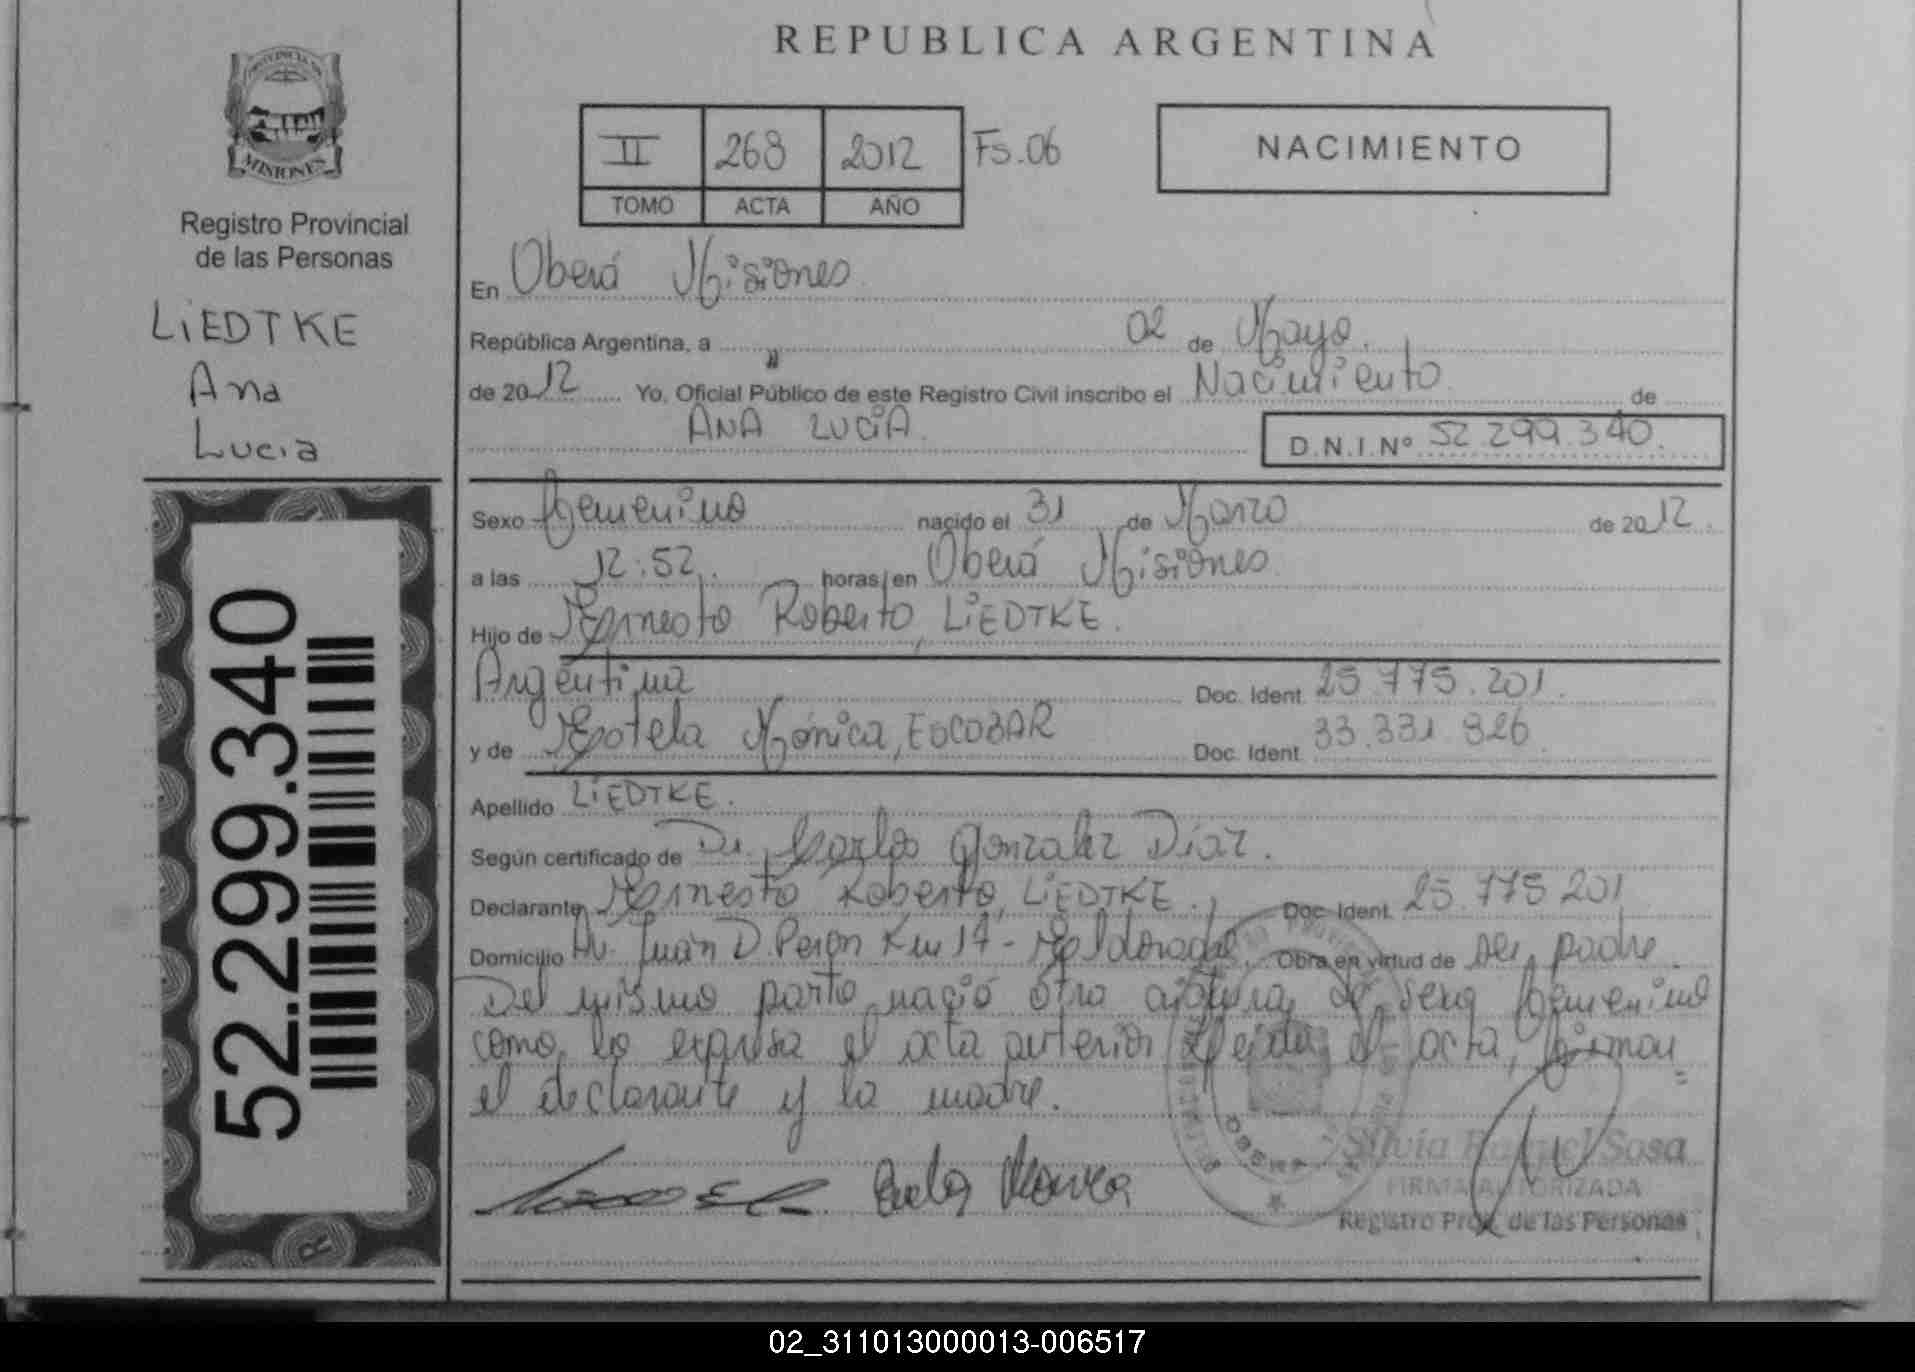 REPUBLICA ARGENTINA
PROVINCIA DE
MISIONES
Registro Provincial
de las Personas
LiEDTKE
Ana
Lucia
52.299.340
II 268 2012 Fs.06
TOMO ACTA AÑO
NACIMIENTO
En Oberá Misiones
República Argentina, a 02 de Mayo.
de 2012 Yo, Oficial Público de este Registro Civil inscribo el Nacimiento de
ANA LUCiA. D.N.I.Nº 52.299.340.
Sexo femenino nacido el 31 de Marzo de 2012.
a las 12:52. horas, en Oberá Misiones.
Hijo de Ernesto Roberto, LiEDTKE.
Argentina Doc. Ident. 25.775.201.
y de Estela Mónica, ESCOBAR Doc. Ident. 33.331.826.
Apellido LiEDTKE.
Según certificado de Dr. Carlos Gonzalez Díaz.
Declarante Ernesto Roberto, LiEDTKE. Doc. Ident. 25.775.201
Domicilio Av. Juan D. Peron Km 17 - Eldorado. Obra en virtud de ser padre.
Del mismo parto nació otra criatura de sexo femenino
como lo expresa el acta anterior leida el acta, firman
el declarante y la madre.
Silvia Raquel Sosa
FIRMA AUTORIZADA
Registro Prov. de las Personas
R
02_311013000013-006517